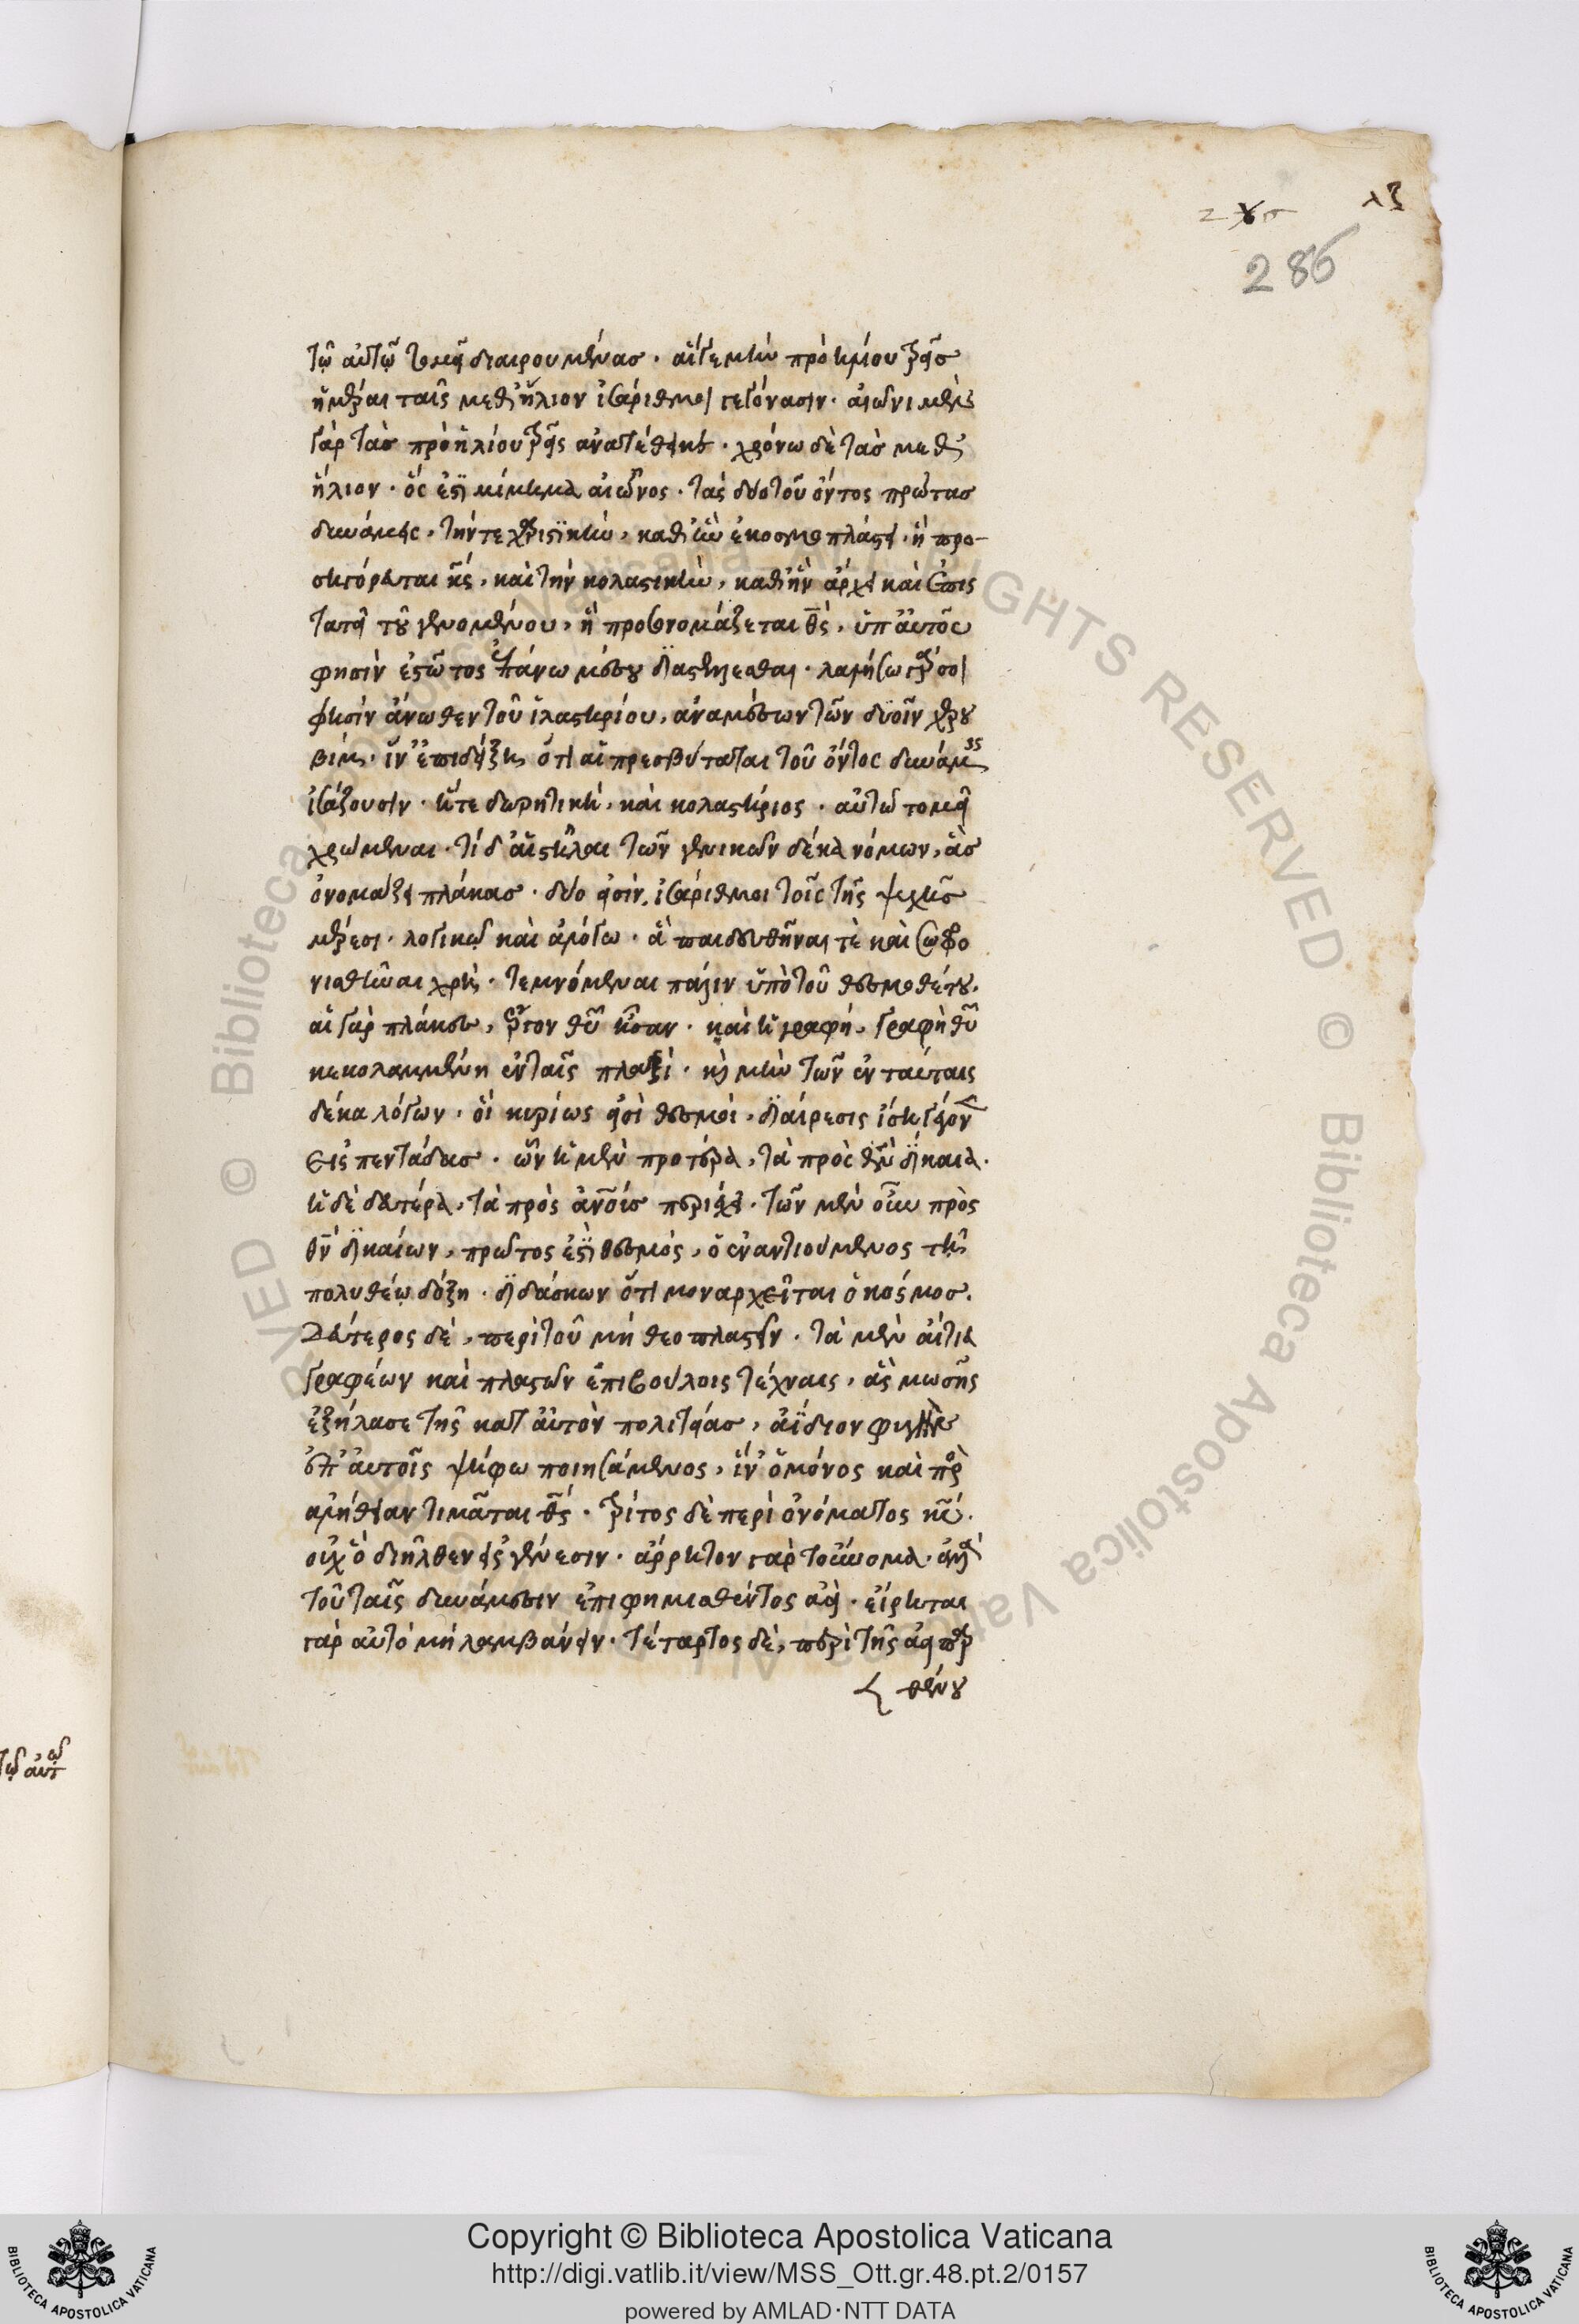 λζ
286
τῷ αὐτῷ τομεῖ διαιρουμένας · αἵ γε μὴν πρὸ ἡλίου τρεῖς
ἡμέραι ταῖς μεθ' ἥλιον ἰσάριθμοι γεγόνασιν · αἰῶνι μὲν
γὰρ τὰς πρὸ ἡλίου τρεῖς ἀνατέθεικε · χρόνω δὲ τὰς μεθ'
ἥλιον · ὅς ἐστι μίμημα αἰῶνος · τὰς δὲ τοῦ ὄντος πρώτας
δυνάμεις, τήν τε χαριστικὴν, καθ' ἣν ἐκοσμοπλάστει, ἣ προ-
σηγόρευται κς, καὶ τὴν κολαστικὴν, καθ' ἣν ἄρχει καὶ ἐπις
τατεῖ τοῦ γενομένου, ἣ προσονομάζεται θς, ὑπ' αὐτοῦ
φησιν ἑστῶτος ἐπάνω μέσου διαστέλλεσθαι · λαλήσω γάρ σοι
φησὶν ἄνωθεν τοῦ ἱλαστηρίου, ἀναμέσων τῶν δυοῖν χερου
βίμ · ἵν' ἐπιδείξη, ὅτι αἱ πρεσβύταται τοῦ ὄντος δυνάμεις
ἰσάζουσιν · ἥτε δωρητικὴ, καὶ κολαστήριος · αὐτῶ τομεῖ
χρώμεναι · τί δ' αἱ στῆλαι τῶν γενικῶν δέκα νόμων, ἃς
ὀνομάζει πλάκας · δύο εἰσὶν, ἰσάριθμοι τοῖς τῆς ψυχῆς
μέρεσι · λογικῷ καὶ ἀλόγω · ἃ παιδευθῆναι τὲ καὶ σωφρο
νισθῆναι χρή · τεμνόμεναι πάλιν ὑπὸ τοῦ θεσμοθέτου.
αἱ γὰρ πλάκες, ἔργον θυ ἦσαν · καὶ ἡ γραφή, γραφὴ θυ
κεκολαμμένη ἐν ταῖς πλαξί · καὶ μὴν τῶν ἐν ταύταις
δέκα λόγων, οἳ κυρίως εἰσὶ θεσμοί, διαίρεσις ἴση γέγονεν
εἰς πεντάδας · ὧν ἡ μὲν προτέρα, τὰ πρὸς θν δίκαια.
ἡ δὲ δευτέρα, τὰ πρὸς ἀνους περιέχει · τῶν μὲν οὖν πρὸς
θν δικαίων, πρῶτος ἐστι θεσμός, ὁ ἐναντιούμενος τῆ
πολυθέῳ δόξη · διδάσκων ὅτι μοναρχεῖται ὁ κόσμος.
Δεύτερος δὲ, περὶ τοῦ μὴ θεοπλαστεῖν · τὰ μὴν αἴτια
γραφέων καὶ πλαστῶν ἐπιβούλοις τέχναις, ἃς μωσῆς
ἐξήλασε τῆς κατ' αὐτὸν πολιτείας, ἀΐδιον φυγὴν
ἐπ' αὐτοῖς ψήφω ποιησάμενος, ἵν' ὁ μόνος καὶ πρὸς
ἀλήθειαν τιμᾶται θς · τρίτος δὲ περὶ ὀνόματος κυ.
οὐχ ὃ διῆλθεν εἰς γένεσιν · ἄρρητον γὰρ τοὔνομα · ἀλλὰ
τοῦ ταῖς δυνάμεσιν ἐπιφημισθέντος ἀεὶ · εἴρηται
γὰρ αὐτὸ μὴ λαμβάνειν · τέταρτος δὲ, περὶ τῆς ἀειπαρ
θένου
τῷ αὐτῷ
Copyright © Biblioteca Apostolica Vaticana
http://digi.vatlib.it/view/MSS_Ott.gr.48.pt.2/0157
powered by AMLAD·NTT DATA